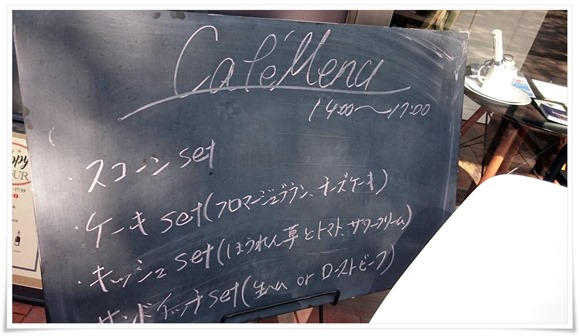 Café Menu
14:00〜17:00
・スコーン set
・ケーキ set (フロマージュブラン、チーズケーキ)
・キッシュ set (ほうれん草とトマト、サワークリーム)
サンドイッチ set (生ハム or ローストビーフ)
ppy
OUR